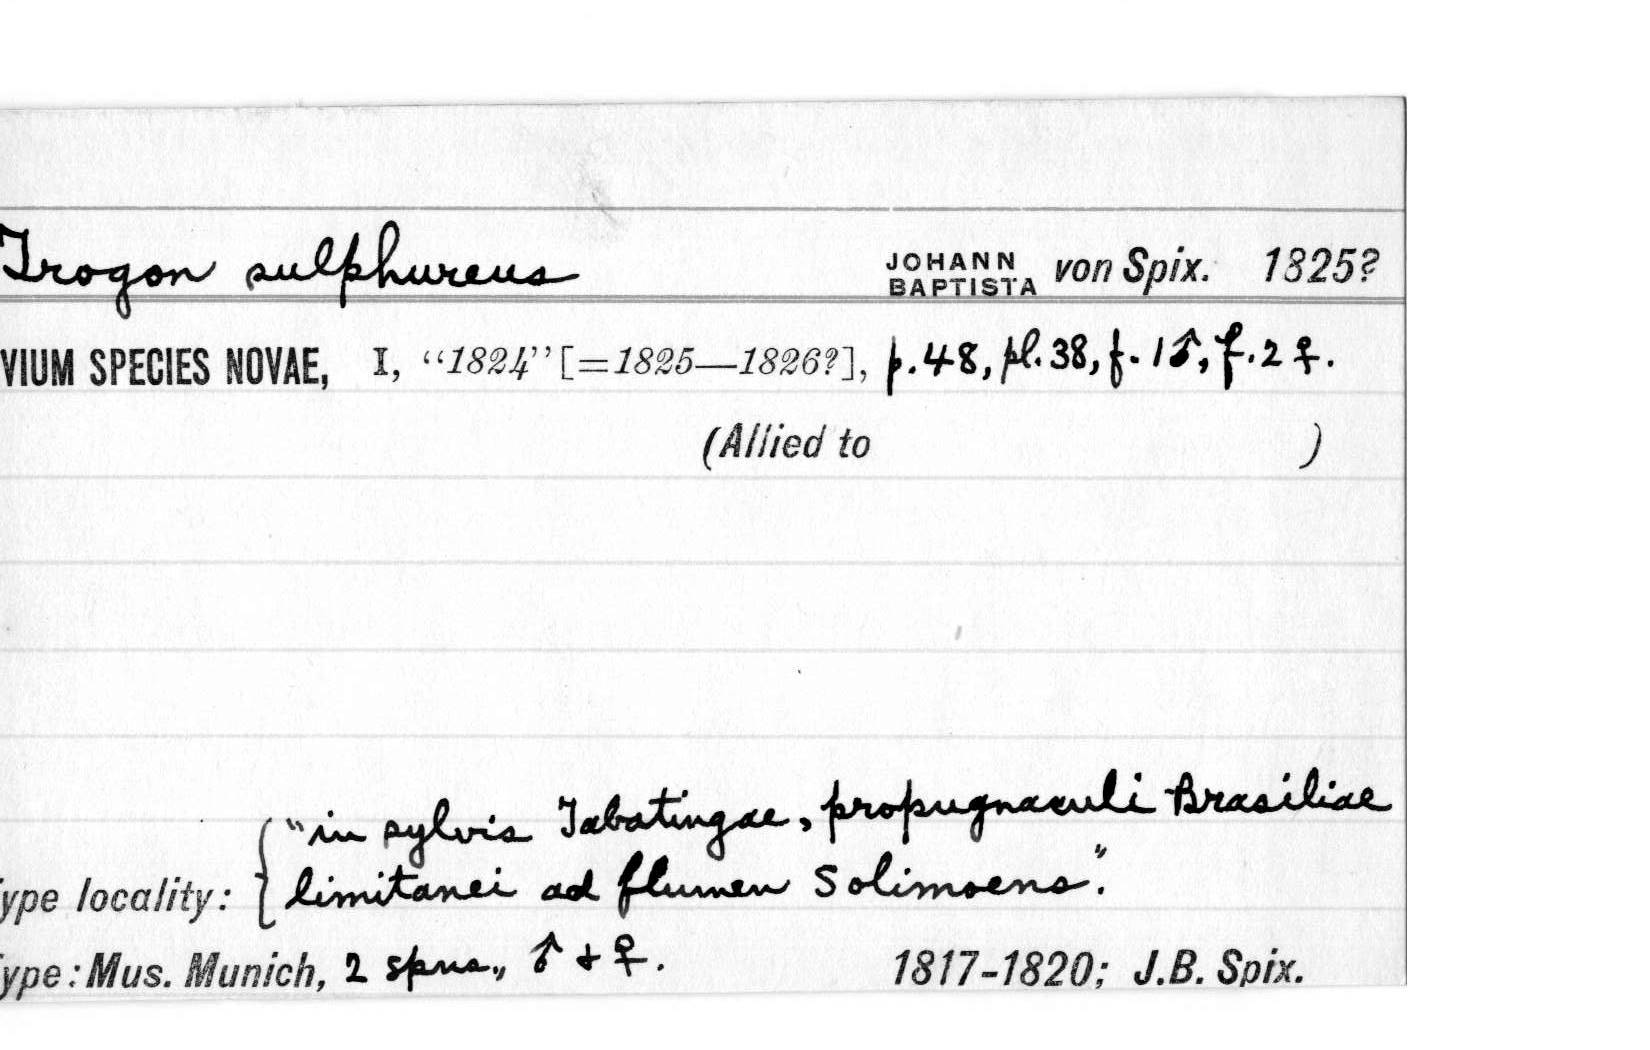 Trogon sulphureus JOHANN BAPTISTA von Spix. 1825?
VIUM SPECIES NOVAE, I, “1824” [=1825—1826?], p. 48, pl. 38, f. 1 ♂, f. 2 ♀.
(Allied to )
"in sylvis Tabatingae, propugnaculi Brasiliae
ype locality: { limitanei ad flumen Solimoens".
ype: Mus. Munich, 2 spns., ♂ & ♀. 1817-1820; J.B. Spix.